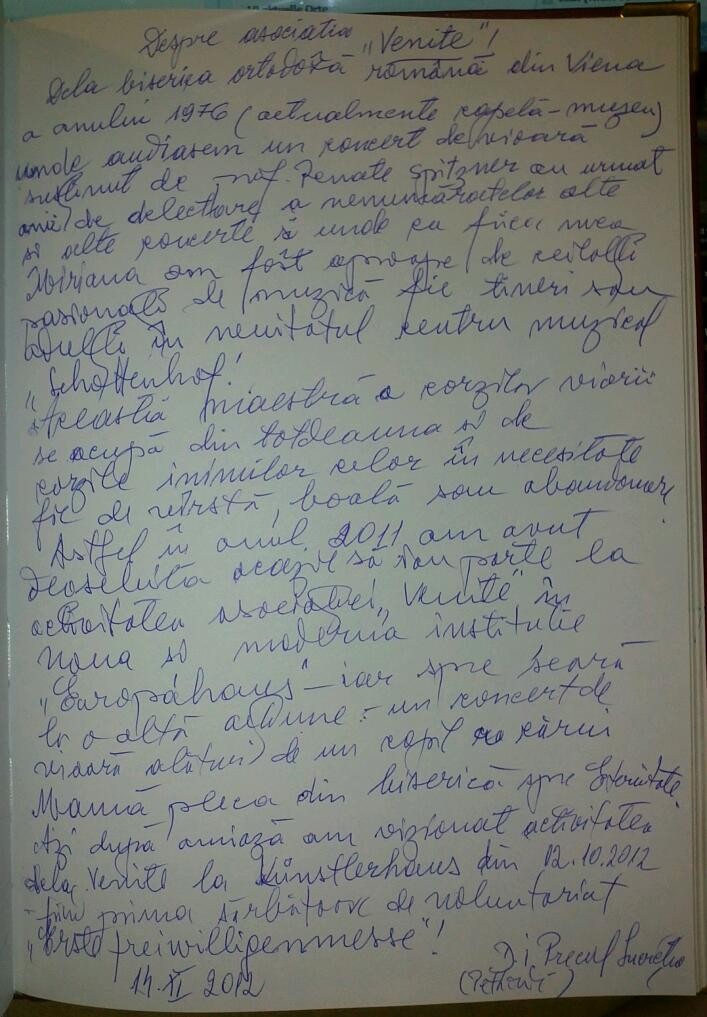 Despre asociatia "Venite"!
Dela biserica ortodoxă română din Viena
a anului 1976 (actualmente capelă-muzeu)
unde audiasem un concert de vioară
sustinut de prof. Renate Spitzner au urmat
anii de delectare a nenumăratelor alte
si alte concerte si unde cu fiica mea
Miriana am fost aproape de ceilalti
pasionati de muzică fie tineri sau
adulti în neuitatul centru muzical
"Schottenhof!
Această miaestră a corzilor viorii
se ocupă din totdeauna si de
corzile inimilor celor în necesitate
fie de vîrstă, boală sau abandonare.
Astfel în anul 2011 am avut
deosebita ocazie să iau parte la
activitatea asociatiei "Venite" în
noua si moderna institutie
"Europahaus" - iar spre seară
la o altă actiune - un concert de
vioară alături de un copil a cărui
Mamă pleca din biserică spre Eternitate.
Azi după amiază am vizionat activitatea
dela Venite la Künstlerhaus din 12.10.2012
prima sărbătoare de voluntariat
"Erste freiwilligenmesse"!
D.i. Precul
14.XI 2012